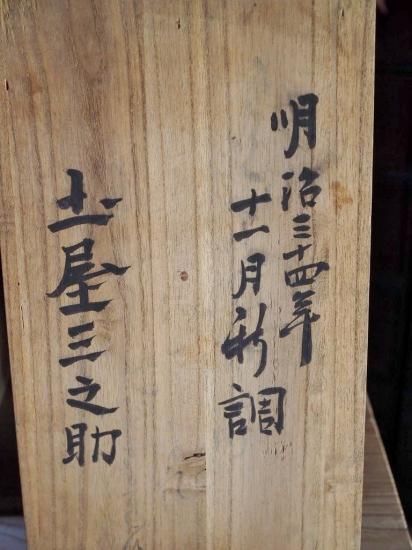 明治三十四年
十一月新調
土屋三之助